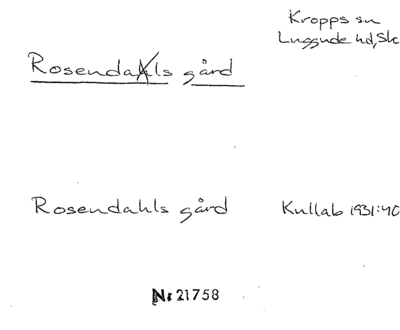 Kropps sn
Luggude hd, Sk
Rosendals gård
Rosendahls gård
Kullab 1931:40
Nr 21758